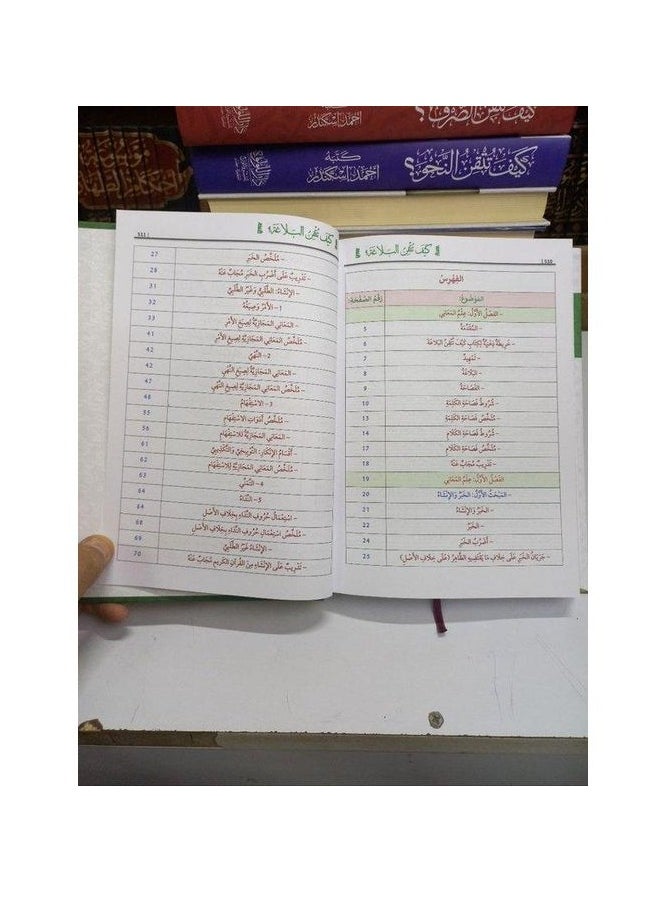 كيف تتقن الصرف؟
احمد اسكندر
كيف تتقن النحو؟
كتبه
احمد اسكندر
كيف تتقن البلاغة؟
الفِهْرِس
المَوْضُوعُ: رَقْمُ الصَّفْحَةِ:
- الفَصْلُ الأَوَّلُ: عِلْمُ المَعَانِي
- المُقَدِّمَةُ 5
- خَرِيطَةٌ ذِهْنِيَّةٌ لِكِتَابِ كَيْفَ تُتْقِنُ البَلَاغَةَ 6
- تَمْهِيدٌ 7
- البَلَاغَةُ 8
- الفَصَاحَةُ 9
- شُرُوطُ فَصَاحَةِ الكَلِمَةِ 10
- مُلَخَّصُ فَصَاحَةِ الكَلِمَةِ 13
- شُرُوطُ فَصَاحَةِ الكَلَامِ 14
- مُلَخَّصُ فَصَاحَةِ الكَلَامِ 17
- تَدْرِيبٌ مُجَابٌ عَنْهُ 18
الفَصْلُ الأَوَّلُ: عِلْمُ المَعَانِي 19
- المَبْحَثُ الأَوَّلُ: الخَبَرُ وَالإِنْشَاءُ 20
- الخَبَرُ وَالإِنْشَاءُ 21
- الخَبَرُ 22
- أَضْرُبُ الخَبَرِ 24
- جَرَيَانُ الخَبَرِ عَلَى خِلَافِ مَا يَقْتَضِيهِ الظَّاهِرُ (عَلَى خِلَافِ الأَصْلِ) 25
كيف تتقن البلاغة؟
- مُلَخَّصُ الخَبَرِ 27
- تَدْرِيبٌ عَلَى أَضْرُبِ الخَبَرِ مُجَابٌ عَنْهُ 28
- الإِنْشَاءُ: الطَّلَبِيُّ وَغَيْرُ الطَّلَبِيِّ 31
1- الأَمْرُ وَصِيَغُهُ 32
- المَعَانِي المَجَازِيَّةُ لِصِيَغِ الأَمْرِ 33
- مُلَخَّصُ المَعَانِي المَجَازِيَّةِ لِصِيَغِ الأَمْرِ 41
2- النَّهْيُ 42
- المَعَانِي المَجَازِيَّةُ لِصِيَغِ النَّهْيِ 42
- مُلَخَّصُ المَعَانِي المَجَازِيَّةِ لِصِيَغِ النَّهْيِ 47
3- الاسْتِفْهَامُ 48
- مُلَخَّصُ أَدَوَاتِ الاسْتِفْهَامِ 55
- المَعَانِي المَجَازِيَّةُ لِلِاسْتِفْهَامِ 56
- أَقْسَامُ الإِنْكَارِ: التَّوْبِيخِيُّ وَالتَّكْذِيبِيُّ 61
- مُلَخَّصُ المَعَانِي المَجَازِيَّةِ لِلِاسْتِفْهَامِ 60
4- التَّمَنِّي 63
5- النِّدَاءُ 64
- اسْتِعْمَالُ حُرُوفِ النِّدَاءِ بِخِلَافِ الأَصْلِ 64
- مُلَخَّصُ اسْتِعْمَالِ حُرُوفِ النِّدَاءِ بِخِلَافِ الأَصْلِ 68
- الإِنْشَاءُ غَيْرُ الطَّلَبِيِّ 69
- تَدْرِيبٌ عَلَى الإِنْشَاءِ مِنَ القُرْآنِ الكَرِيمِ مُجَابٌ عَنْهُ 70